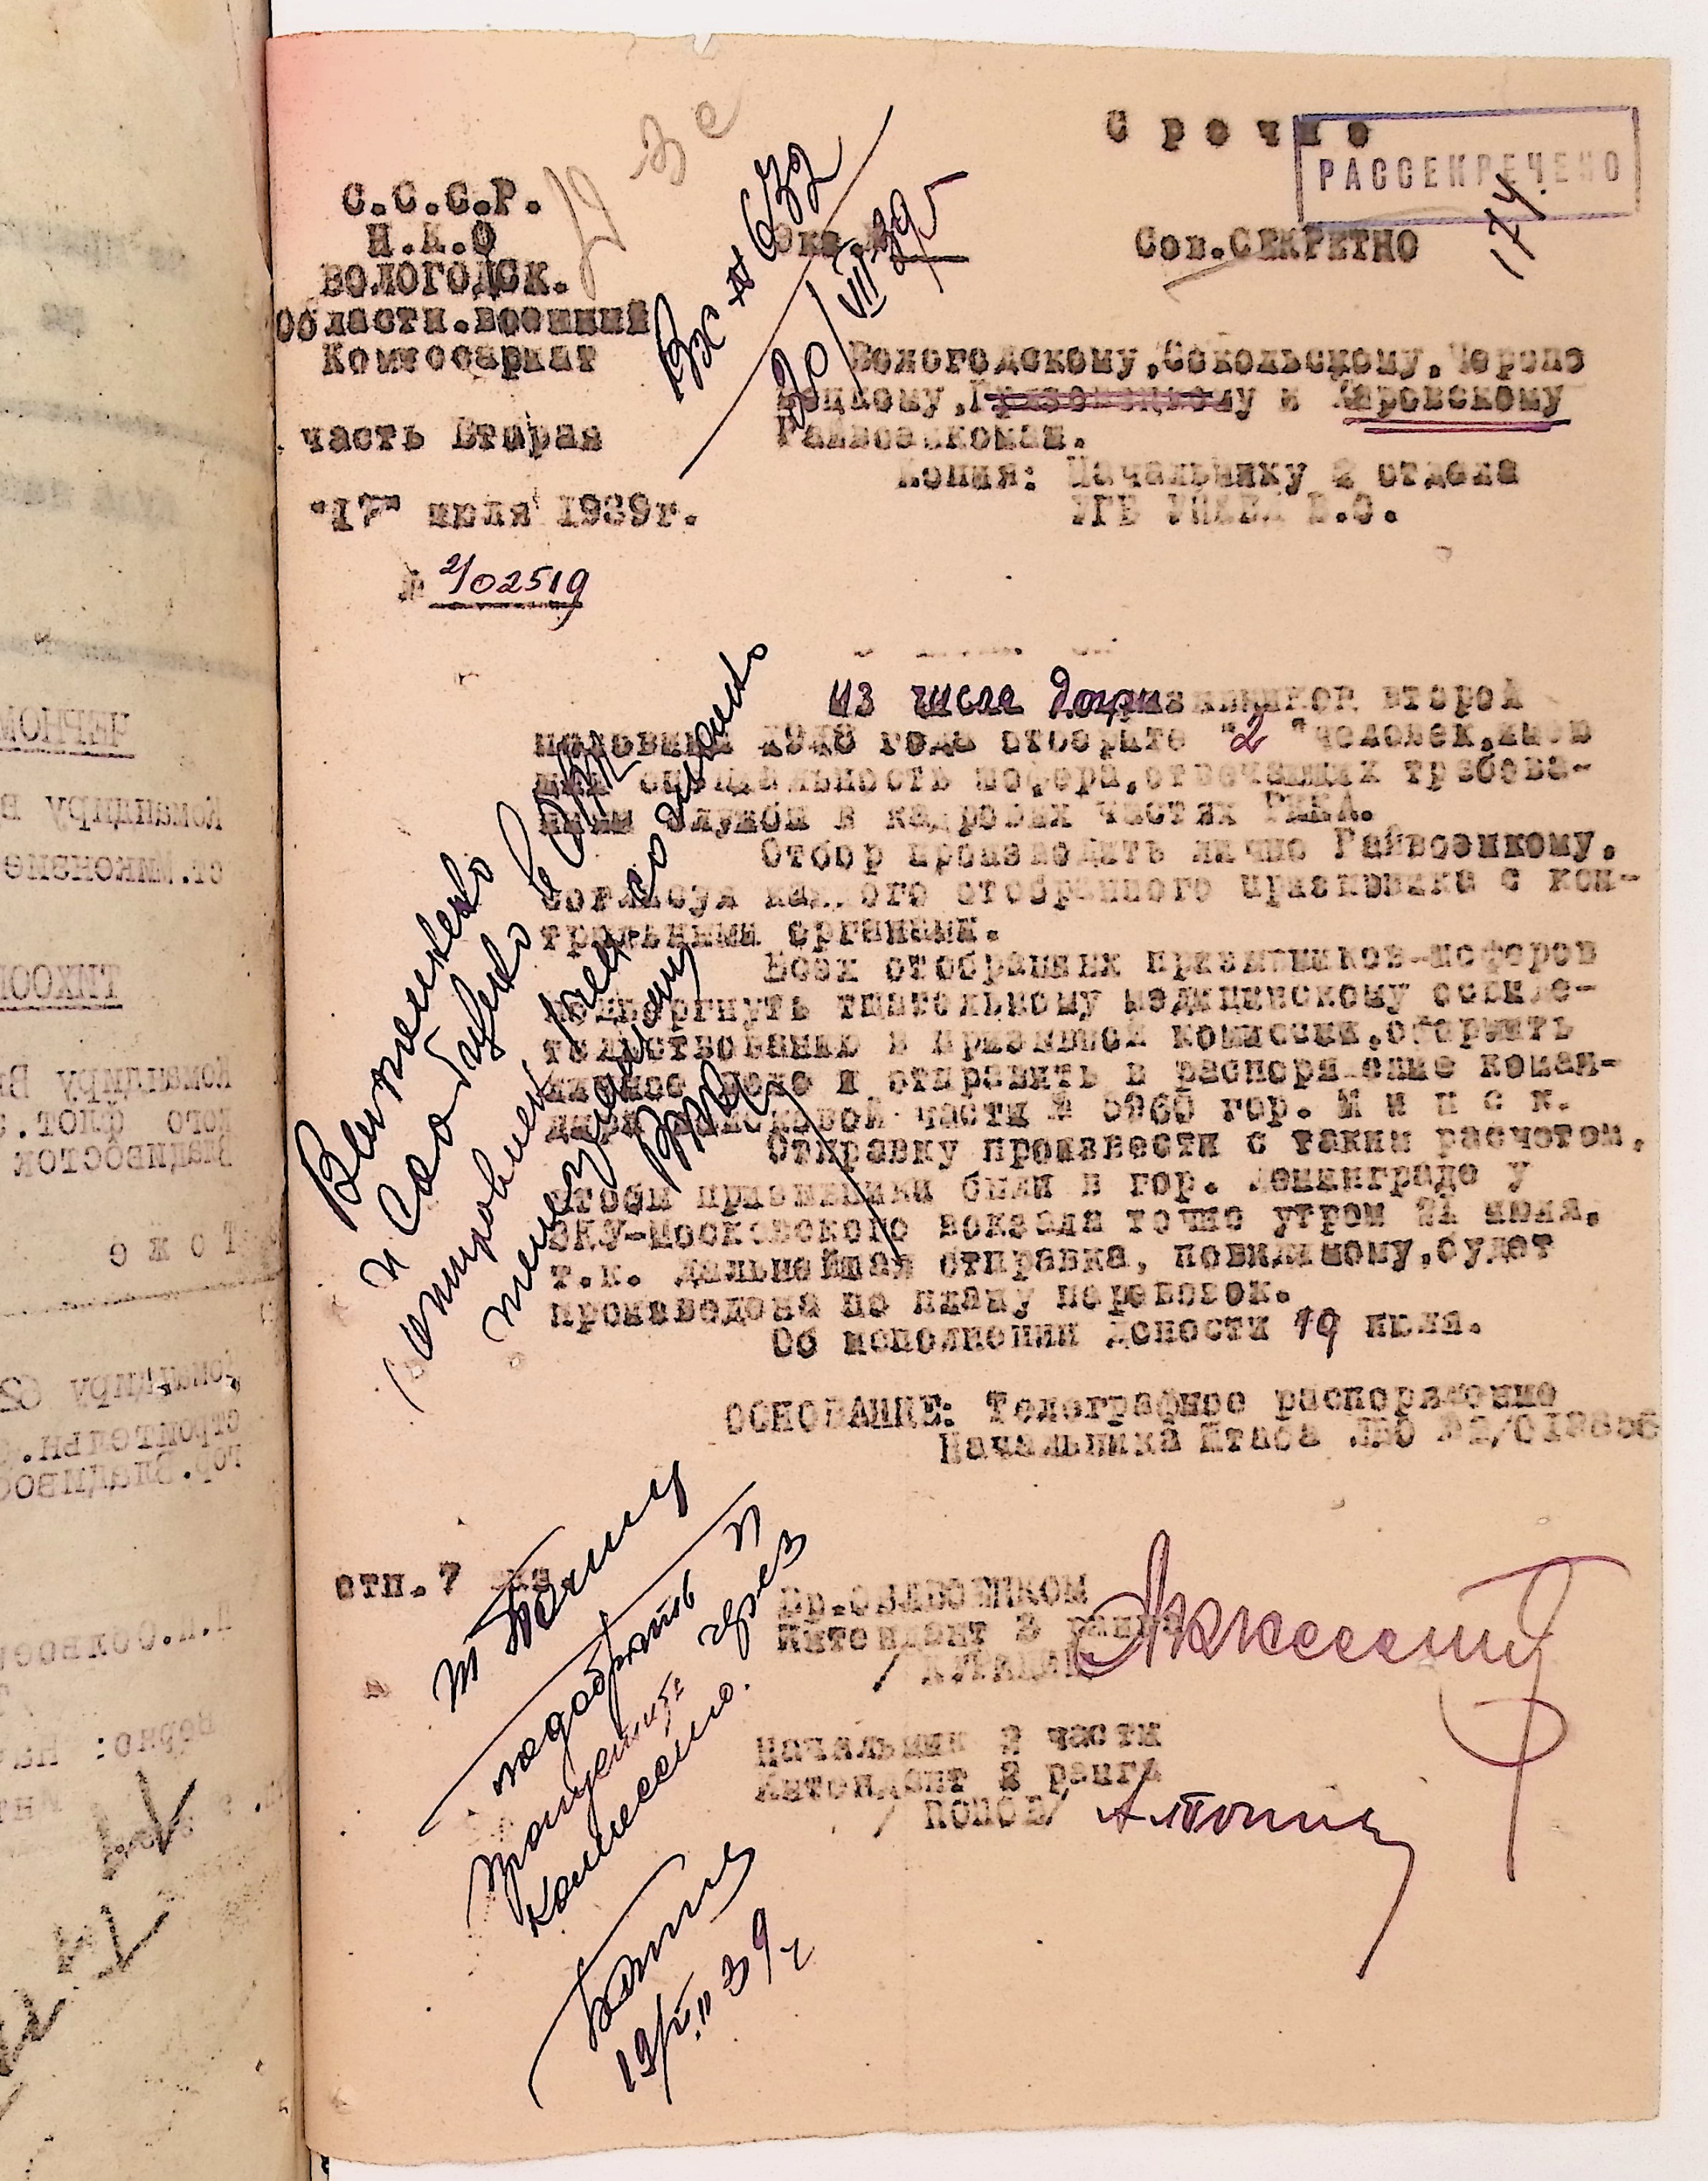 С р о ч н о
РАССЕКРЕЧЕНО
174.
С.С.С.Р.
Н.К.О
ВОЛОГОДСК.
Области.военный
Комиссариат
Экз.№
Сов.СЕКРЕТНО
Вх № 632
20/VII 39
часть Вторая
"17" июля 1939г.
№ 2/02519
Вологодскому,Сокольскому,Черепо
вецкому,Грязовецкому и Харовскому
Райвоенкомам.
Копия: Начальнику 2 отдела
УГБ УНКВД В.О.
Из числа допризывников второй
половины 1918 года отберите "2" человек,имею
щих специальность шофера,отвечающих требова-
ниям службы в кадровых частях РККА.
Отбор производить лично Райвоенкому,
согласуя каждого отобранного призывника с кон-
трольными органами.
Всех отобранных призывников-шоферов
подвергнуть тщательному медицинскому освиде-
тельствованию в призывной комиссии,оформить
личное дело и отправить в распоряжение коман-
дира войсковой части № 5960 гор. М и н с к.
Отправку произвести с таким расчетом,
чтобы призывники были в гор. Ленинграде у
ЗКУ-Московского вокзала точно утром 21 июля,
т.к. дальнейшая отправка, повидимому,будет
произведена по плану перевозок.
Об исполнении донести 19 июля.
ОСНОВАНИЕ: Телеграфное распоряжение
Начальника Штаба ЛВО №2/018856
Выполнено
и Сообщено в ОВК
согласно
отп.7 экз
Вр.ОБЛВОЕНКОМ
Интендант 3 ранга
Начальник 2 части
Интендант 2 ранга
/ ПОПОВ/
подобрать и
через
комиссию.
19/VII 39г